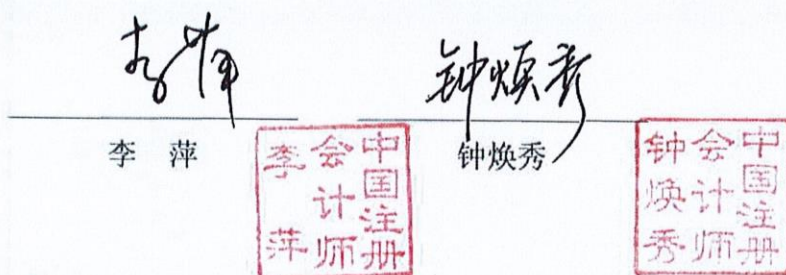 李萍
钟焕秀
李 萍
钟焕秀
中国注册
会计师
李萍
中国注册
会计师
钟焕秀